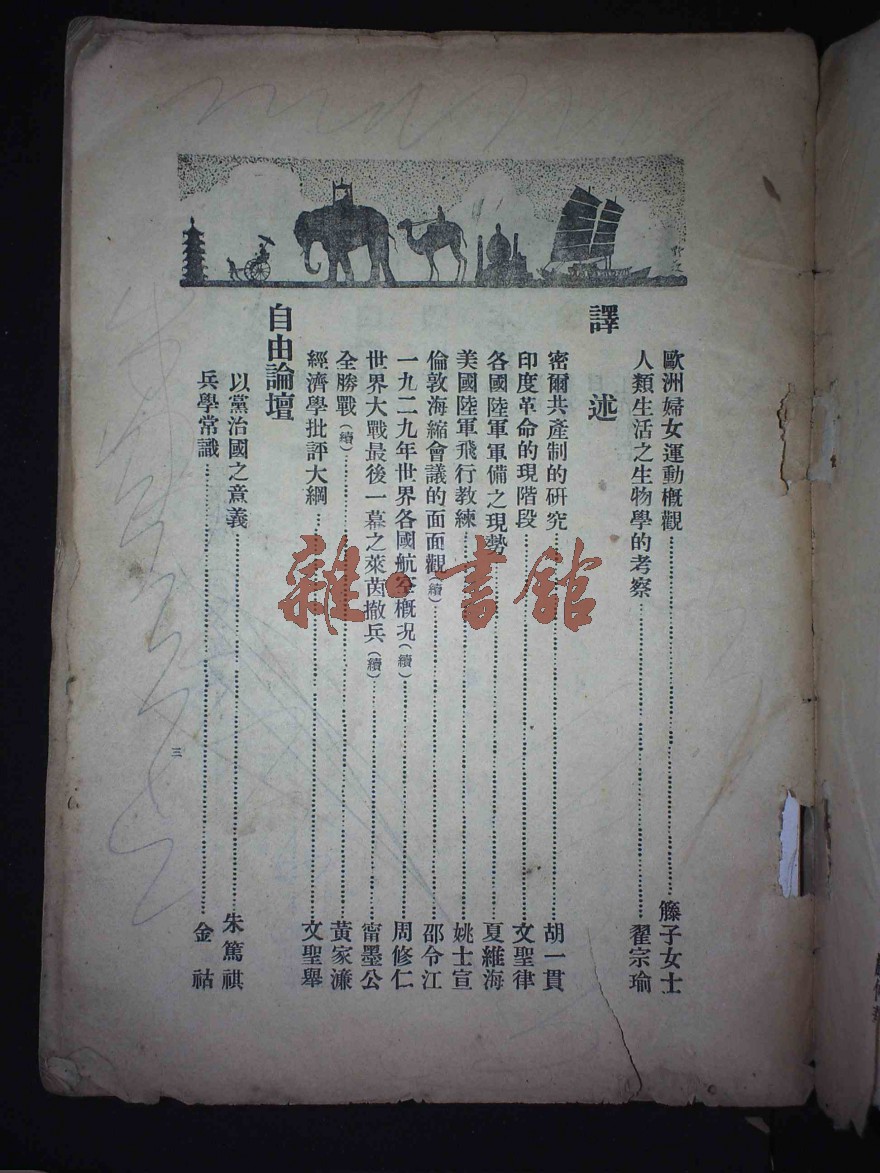 歐洲婦女運動概觀 籐子女士
人類生活之生物學的考察 翟宗瑜
譯述
密爾共產制的研究 胡一貫
印度革命的現階段 文聖律
各國陸軍軍備之現勢 夏維海
美國陸軍飛行教練 姚士宣
倫敦海縮會議的面面觀(續) 邵令江
一九二九年世界各國航空概況(續) 周修仁
世界大戰最後一幕之萊茵撤兵(續) 甯墨公
全勝戰(續) 黃家濂
經濟學批評大綱 文聖舉
自由論壇
以黨治國之意義 朱篤祺
兵學常識 金祜
三
雜·書館